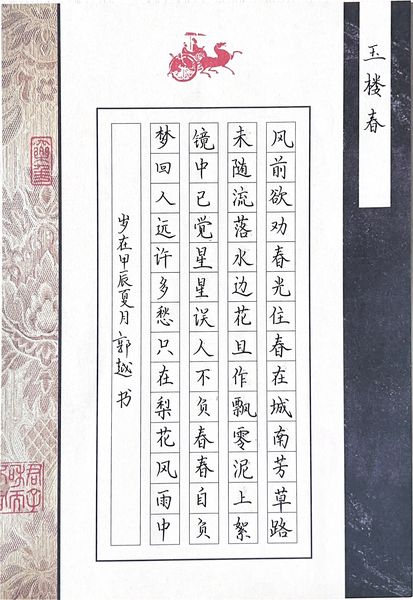 玉楼春
风前欲劝春光住春在城南芳草路
未随流落水边花且作飘零泥上絮
镜中已觉星星误人不负春春自负
梦回人远许多愁只在梨花风雨中
岁在甲辰夏月郭越书
君子